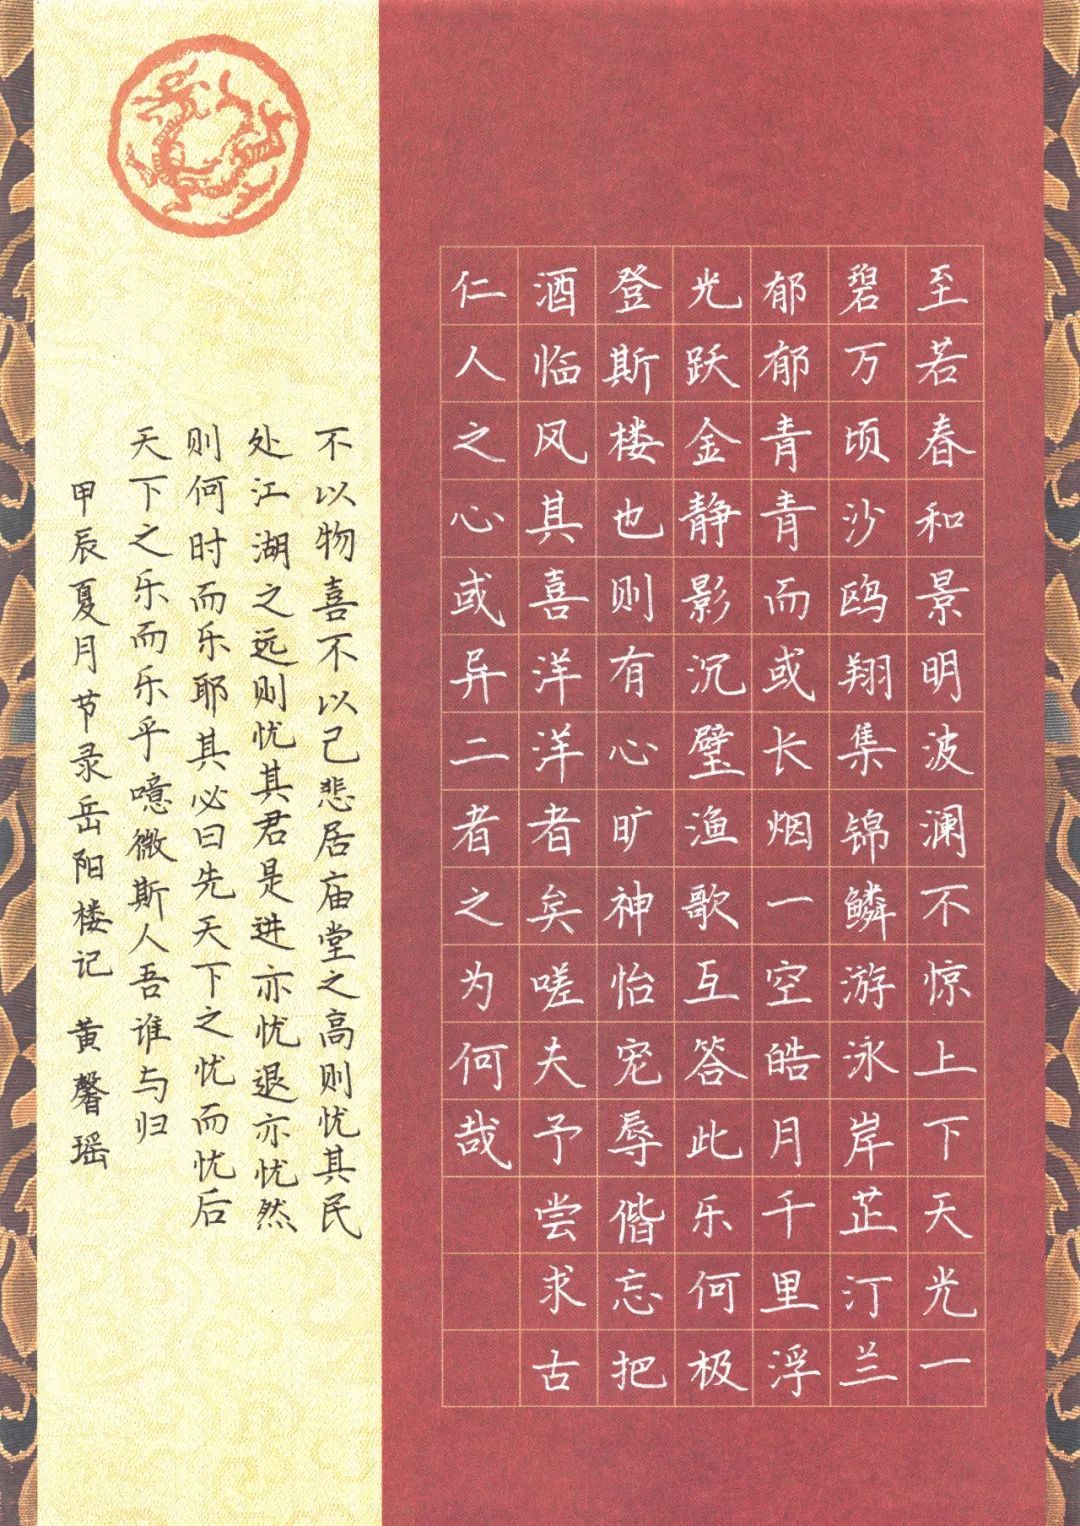 至若春和景明波澜不惊上下天光一
碧万顷沙鸥翔集锦鳞游泳岸芷汀兰
郁郁青青而或长烟一空皓月千里浮
光跃金静影沉璧渔歌互答此乐何极
登斯楼也则有心旷神怡宠辱偕忘把
酒临风其喜洋洋者矣嗟夫予尝求古
仁人之心或异二者之为何哉
不以物喜不以己悲居庙堂之高则忧其民
处江湖之远则忧其君是进亦忧退亦忧然
则何时而乐耶其必曰先天下之忧而忧后
天下之乐而乐乎噫微斯人吾谁与归
甲辰夏月节录岳阳楼记 黄馨瑶